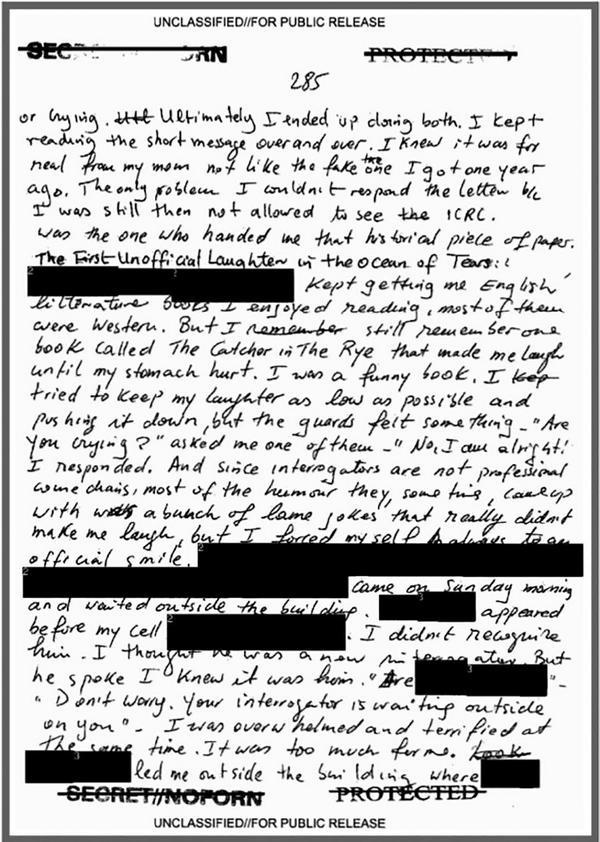 UNCLASSIFIED//FOR PUBLIC RELEASE
PROTECTED
285
or crying. Ultimately I ended up doing both. I kept
reading the short message over and over. I knew it was for
real from my mom not like the fake the one I got one year
ago. The only problem I couldn't respond the letter b/c
I was still then not allowed to see the ICRC.
was the one who handed me that historical piece of paper.
The First Unofficial Laughter in the ocean of Tears:
kept getting me English
litterature books I enjoyed reading, most of them
were Western. But I remember still remember one
book called The Catcher in The Rye that made me laugh
until my stomach hurt. I was a funny book. I kep
tried to keep my laughter as low as possible and
pushing it down, but the guards felt something - "Are
you crying?" asked me one of them - "No, I am alright!
I responded. And since interrogators are not professional
most of the humour they, some time, came up
with a bunch of lame jokes that really didn't
make me laugh, but I forced myself always to an
official smile.
came on Sunday morning
and waited outside the building. appeared
before my cell . I didn't recognize
him. I thought he was a new interrogator. But
he spoke I knew it was him. "Are "-
"Don't worry. Your interrogator is waiting outside
on you" - I was overwhelmed and terrified at
the same time. It was too much for me. Took
led me outside the building where
SECRET//NOFORN PROTECTED
UNCLASSIFIED//FOR PUBLIC RELEASE